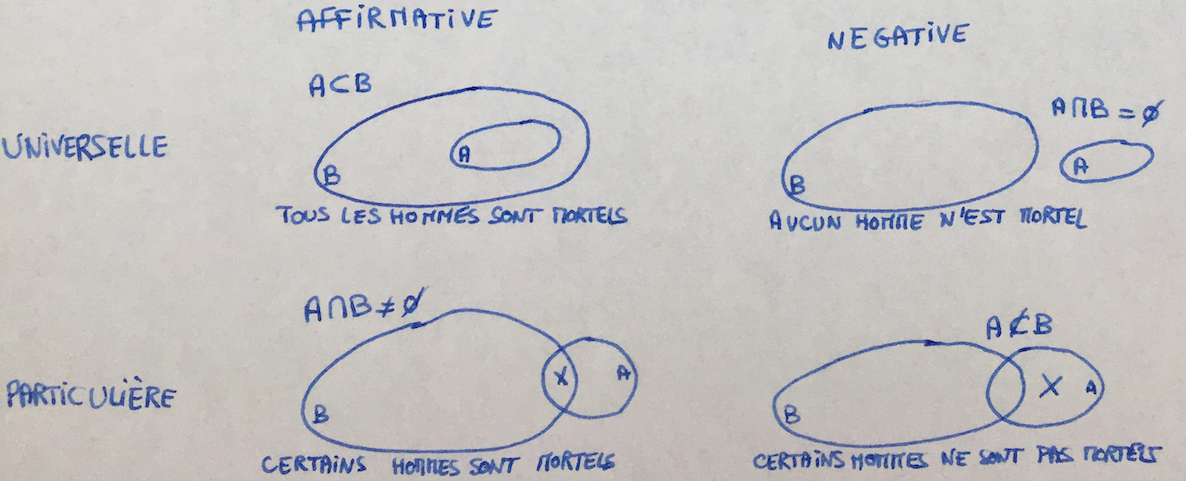 AFFIRMATIVE
NEGATIVE
UNIVERSELLE
A⊂B
B
A
TOUS LES HOMMES SONT MORTELS
A∩B = ∅
B
A
AUCUN HOMME N'EST MORTEL
PARTICULIÈRE
A∩B ≠ ∅
B
X
A
CERTAINS HOMMES SONT MORTELS
A⊄B
B
X
A
CERTAINS HOMMES NE SONT PAS MORTELS